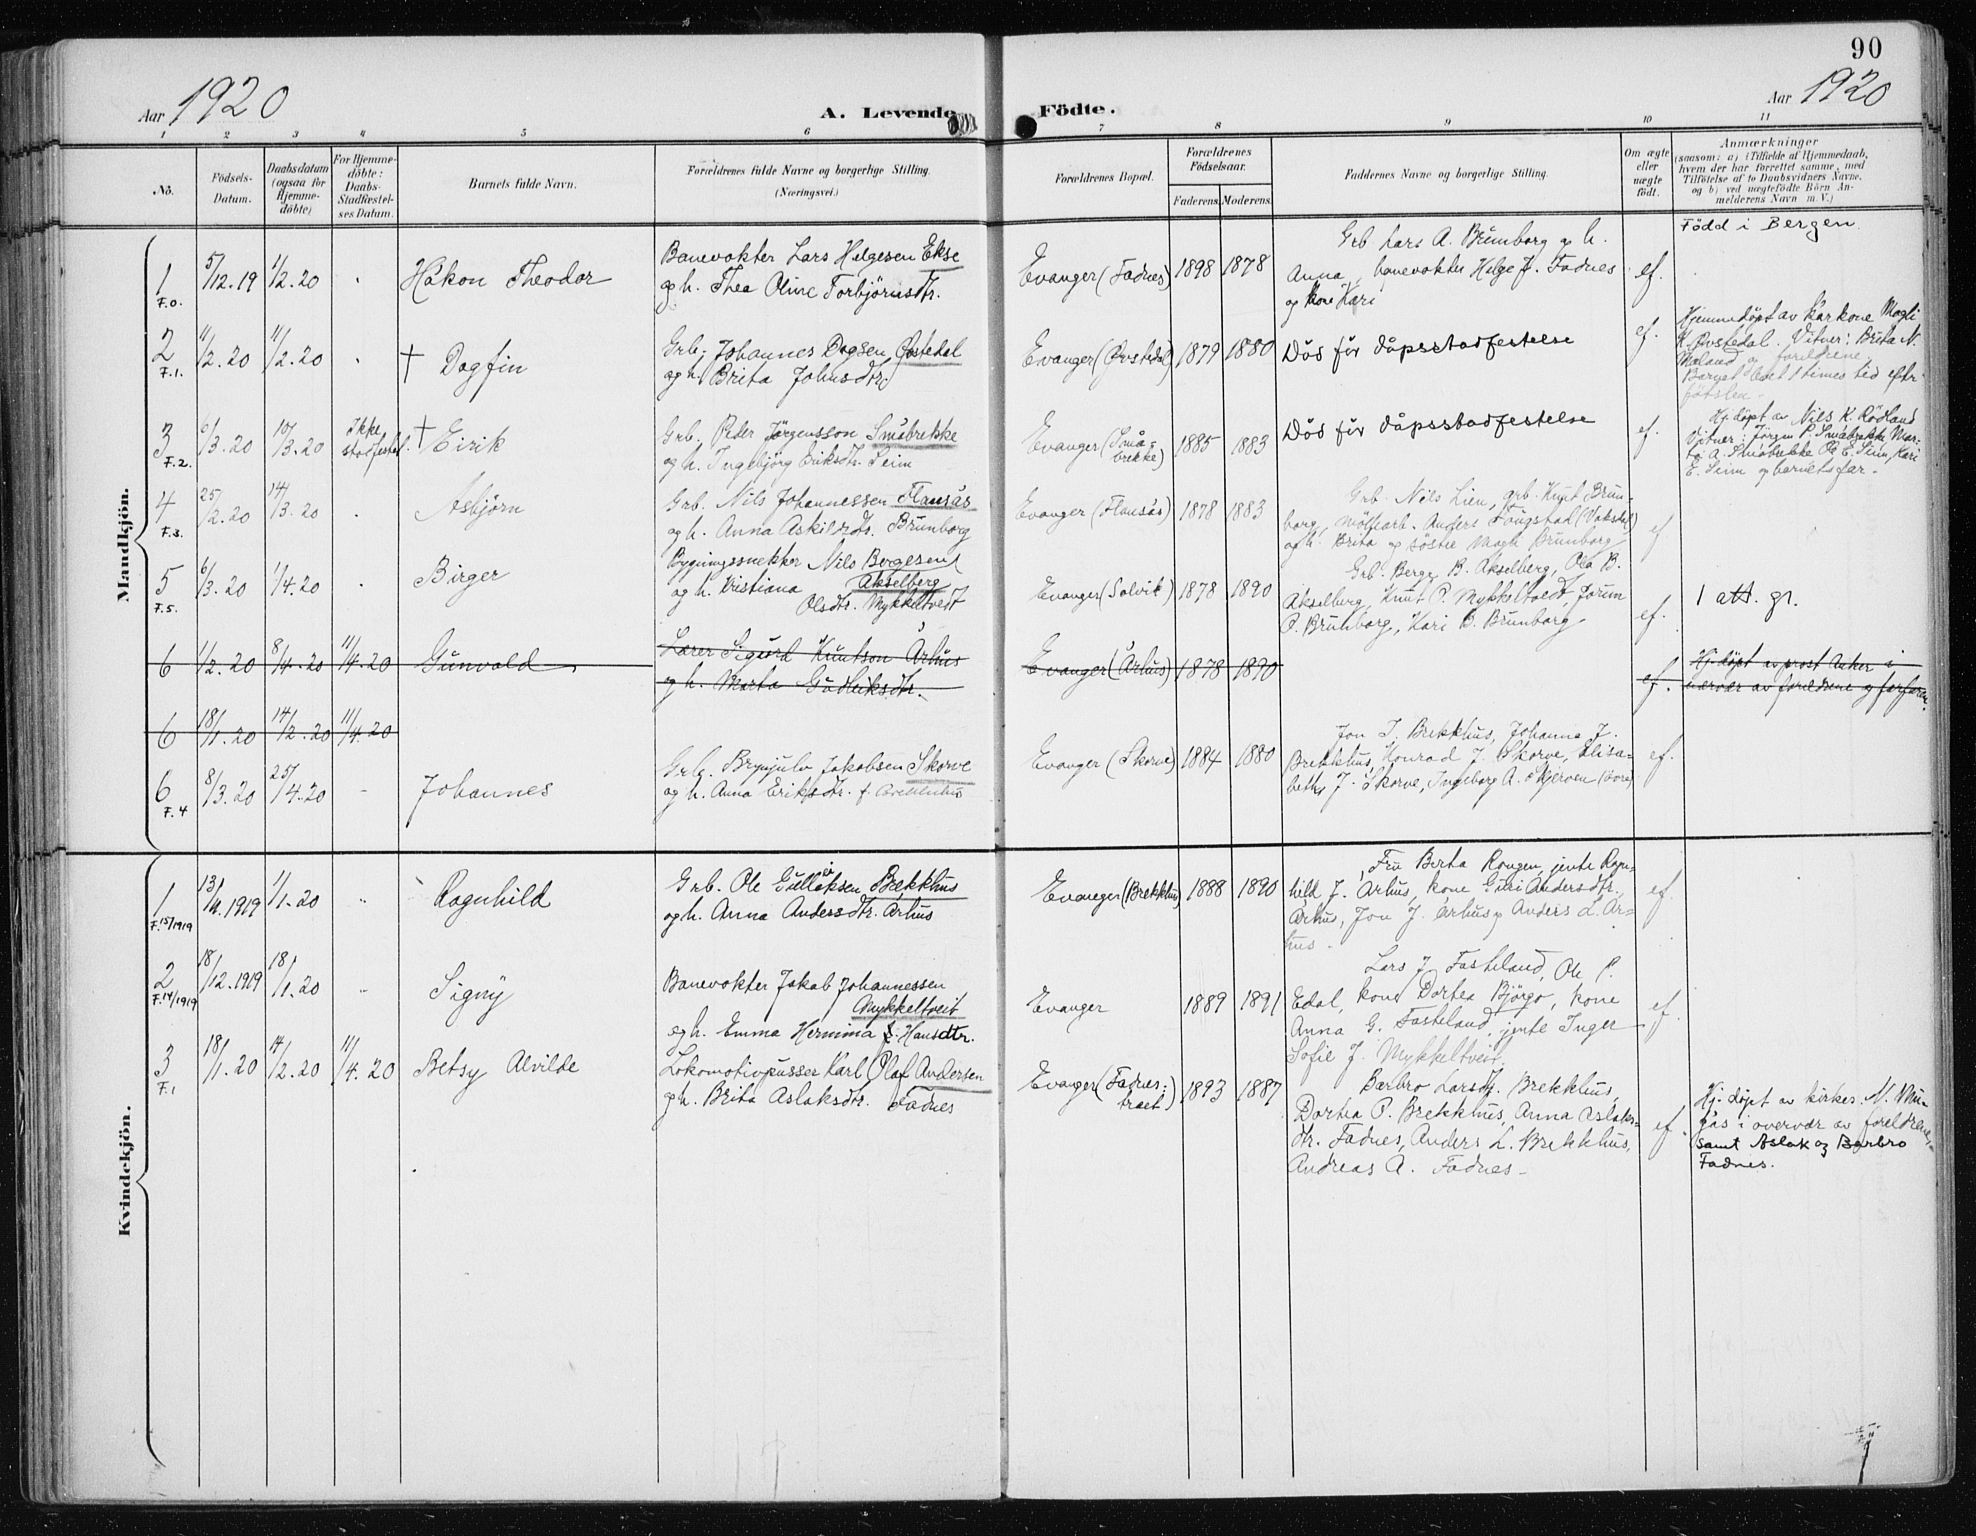 90
Aar 1920
A. Levende Födte.
Aar 1920
1 2 3 4 5 6 7 8 9 10 11
No.
Födsels-
Datum.
Daabsdatum
(ogsaa for
Hjemme-
döbte)
For Hjemme-
döbte:
Daabs-
Stadfæstel-
ses Datum.
Barnets fulde Navn.
Forældrenes fulde Navne og borgerlige Stilling.
(Næringsvei.)
Forældrenes Bopæl.
Forældrenes
Födselsaar.
Faderens. Moderens.
Faddernes Navne og borgerlige Stilling.
Om ægte
eller
uægte
födt.
Anmærkninger
(saasom: a) i Tilfælde af Hjemmedaab,
hvem der har forrettet samme, med
Tilföielse af to Daabsvidners Navne,
og b) ved uægtefödte Börn An-
melderens Navn m. V.)
Mandkjön.
1
F.0.
5/12.19
1/2.20
Håkon Theodor
Banevokter Lars Helgesen Ekse
og h. Thea Oline Torbjörnsdtr.
Evanger (Fadnes)
1898 1878
Grb. Lars A. Brunborg og h.
Anna, banevokter Helge J. Fadnes
og kone Kari
ef.
Född i Bergen.
2
F.1.
11/2.20
11/2.20
† Dagfin
Grb. Johannes Dagsen Övstedal
og h. Brita Johnsdtr.
Evanger (Övstedal)
1879 1880
Död för dåpsstadfestelse
ef.
Hjemmedöpt av kårkone Magli
K. Övstedal. Vitner: Brita N.
Mæland og foreldrene.
Barnet levet 1 times tid efter
födslen.
3
F.2.
6/3.20
10/3.20
Ikke
stadfestet.
† Eirik
Grb. Peder Jörgensson Småbrekke
og h. Ingebjörg Eriksdtr. Seim
Evanger (Små-
brekke)
1885 1883
Död för dåpsstadfestelse
ef.
Hj. döpt av Nils K. Rödland
Vitner: Jörgen P. Småbrekke, Mar-
ta A. Småbrekke Ole E. Seim, Kari
E. Seim og barnets far.
4
F.3.
25/2.20
14/3.20
Asbjörn
Grb. Nils Johannessen Flansås
og h. Anna Askildsdtr. Brunborg
Evanger (Flansås)
1878 1883
Grb. Nils Lien, grb. Knut Brun-
borg, möllearb. Anders Fougstad (Vaksdal)
og h. Brita og söstre Magli Brunborg
ef
5
F.5.
6/3.20
1/4.20
Birger
Bygningssnekker Nils Bergesen
Akselberg
og h. Kristiana
Olsdtr. Mykkeltvedt
Evanger (Solvik)
1878 1890
Grb. Berge B. Akselberg, Ola B.
Akselberg, Knut P. Mykkeltvedt, Jorun
P. Brunborg, Kari B. Brunborg
ef.
1 att. gr.
6
1/2.20
8/4.20
11/4.20
Gunvald
Lærer Sigurd Knutson Århus
og h. Marta Gudleiksdtr.
Evanger (Århus)
1878 1890
ef.
Hj. döpt av prost Anker i
nærvær av foreldrene og farfaren.
6
18/1.20
14/2.20
11/4.20
6
F.4
8/3.20
25/4.20
Johannes
Grb. Brynjulv Jakobsen Skorve
og h. Anna Eriksdtr. f. Brekkhus
Evanger (Skorve)
1884 1880
Jon J. Brekkhus, Johanna J.
Brekkhus, Konrad J. Skorve, Elisa-
beth J. Skorve, Ingeborg A. Skjerven (Voss)
ef.
Kvindekjön.
1
F.15/1919
13/11.1919
1/1.20
Ragnhild
Grb. Ole Gulleiksen Brekkhus
og h. Anna Andersdtr. Århus
Evanger (Brekkhus)
1888 1890
Fru Berta Rongen, jente Ragn-
hild J. Århus, kone Guri Andersdtr.
Århus, Jon J. Århus og Anders L. År-
hus.
ef.
2
F.14/1919
18/12.1919
18/1.20
Signy
Banevokter Jakob Johannessen
Mykkeltveit
og h. Emma Hermina f. Hansdtr.
Evanger
1889 1891
Lars J. Fasteland, Ole P.
Edal, kone Dortea Björgo, kone
Anna G. Fasteland, jente Inger
Sofie J. Mykkeltveit.
ef.
3
F.1
18/1.20
14/2.20
11/4.20
Betsy Alvilde
Lokomotivpusser Karl Olaf Andersen
og h. Brita Aslaksdtr. Fadnes
Evanger (Fadnes-
træet)
1893 1887
Barbro Larsdtr. Brekkhus,
Dortea P. Brekkhus, Anna Aslaks-
dtr. Fadnes, Anders L. Brekkhus,
Andreas A. Fadnes.
ef.
Hj. döpt av kirkes. N. Mu-
gås i overvær av foreldrene,
samt Aslak og Barbro
Fadnes.